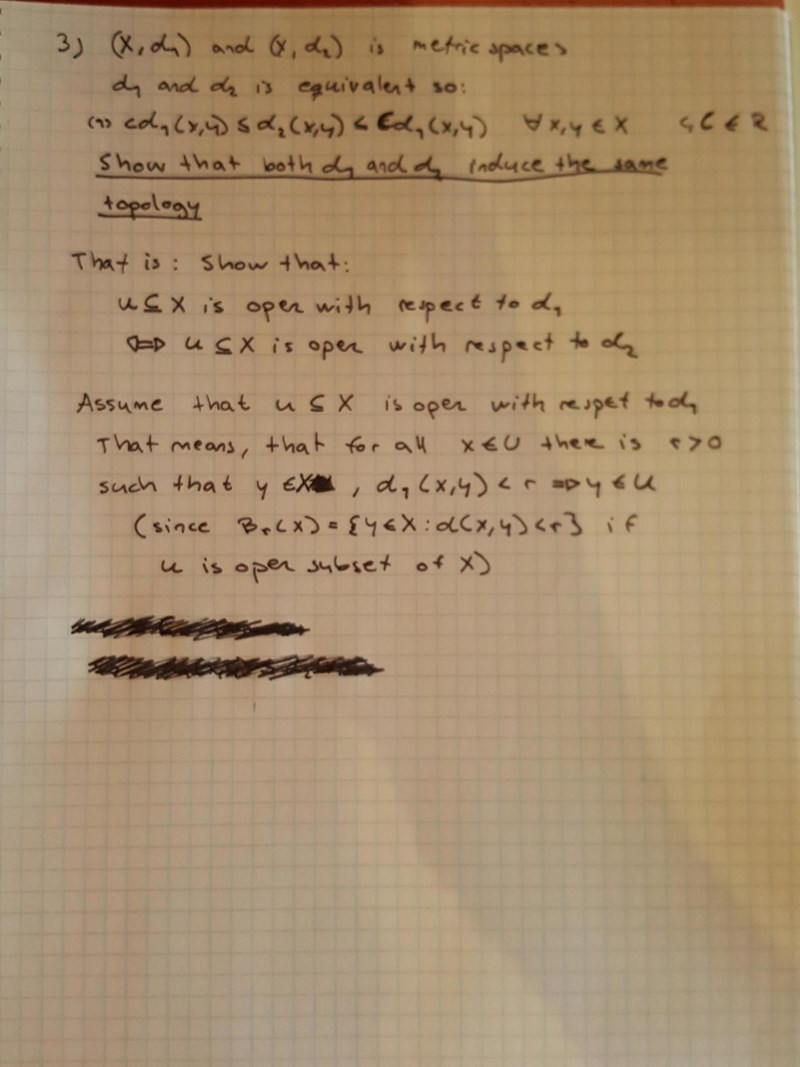 3) (X, d₁) and (X, d₂) is metric spaces
d₁ and d₂ is equivalent so:
(1) cd₁(x,y) ≤ d₂(x,y) ≤ Cd₁(x,y) ∀x,y ∈ X c,C ∈ R
Show that both d₁ and d₁ induce the same
topology
That is: Show that:
U ⊆ X is open with respect to d₁
⇔ U ⊆ X is open with respect to d₂
Assume that U ⊆ X is open with respet to d₁
That means, that for all x ∈ U there is r > 0
such that y ∈ X, d₁(x,y) < r ⇒ y ∈ U
(since Bᵣ(x) = {y ∈ X : d(x,y) < r} if
U is open subset of X)